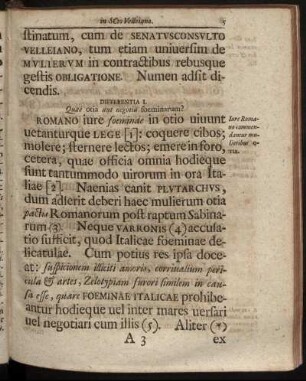 in SCto Velleiano. 5
stinatum, cum de SENATVSCONSVLTO
VELLEIANO, tum etiam universim de
MVLIERVM in contractibus rebusque
gestis OBLIGATIONE. Numen adsit di-
cendis.
DIFFERENTIA I.
Quae otia aut negotia foeminarum?
ROMANO iure foeminae in otio uiuunt
uetanturque LEGE [1]: coquere cibos;
molere; sternere lectos; emere in foro,
cetera, quae officia omnia hodieque
sunt tantummodo uirorum in ora Ita-
liae [2]. Naenias canit PLVTARCHVS,
dum adserit deberi haec mulierum otia
pacto Romanorum post raptum Sabina-
rum (3). Neque VARRONIS (4) accusa-
tio sufficit, quod Italicae foeminae de-
licatulae. Cum potius res ipsa doce-
at: suspicionem illiciti amoris, corriualium peri-
cula & artes, Zelotypiam furori similem in cau-
sa esse, quare FOEMINAE ITALICAE prohibe-
antur hodieque uel inter mares uersari
uel negotiari cum illis (5). Aliter (*)
A 3 ex
Iure Roma-
no commen-
dantur mu-
lieribus o-
tia.